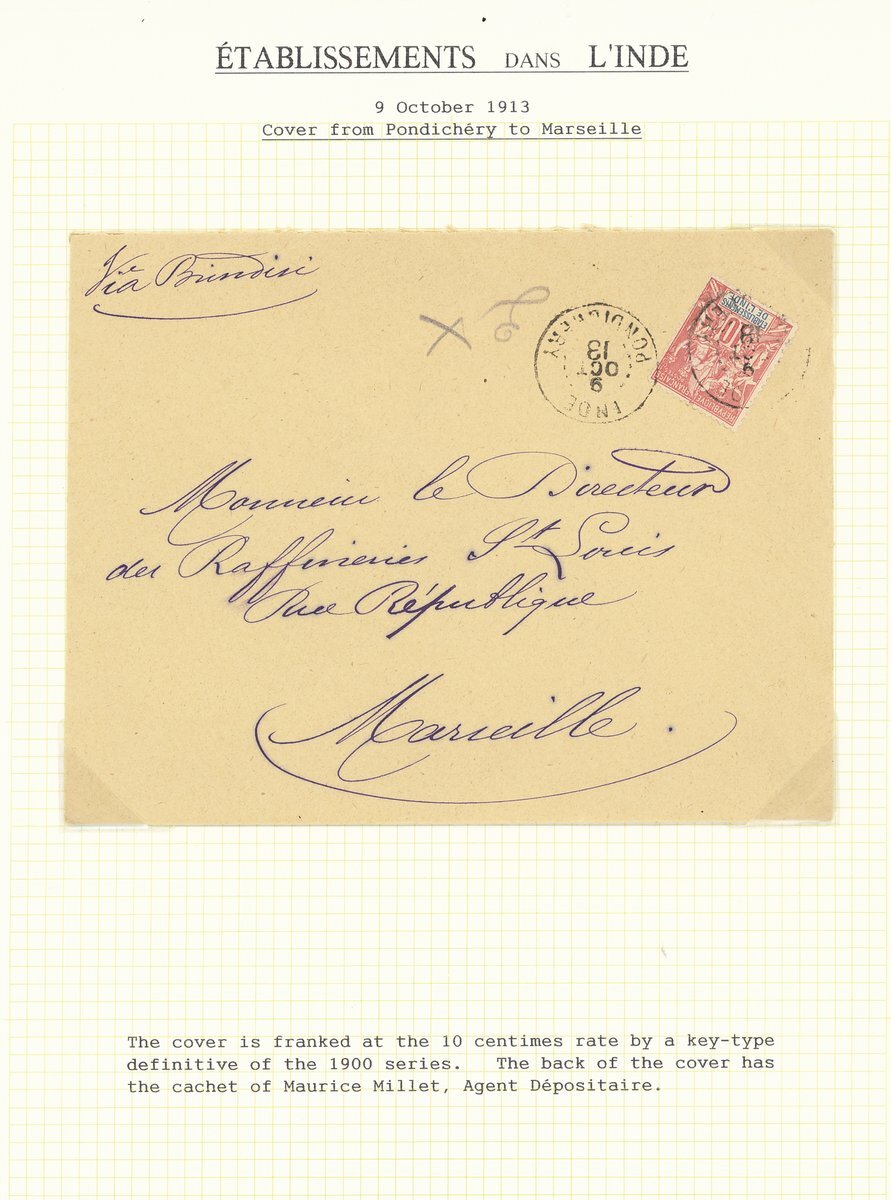 ÉTABLISSEMENTS DANS L'INDE
9 October 1913
Cover from Pondichéry to Marseille
Via Brindisi
PONDICHERY
9
OCT
13
INDE
10
ETABLISSEMENTS
DE L'INDE
REPUBLIQUE FRANCAISE
Monsieur le Directeur
des Raffineries St Louis
Rue République
Marseille.
The cover is franked at the 10 centimes rate by a key-type
definitive of the 1900 series. The back of the cover has
the cachet of Maurice Millet, Agent Dépositaire.